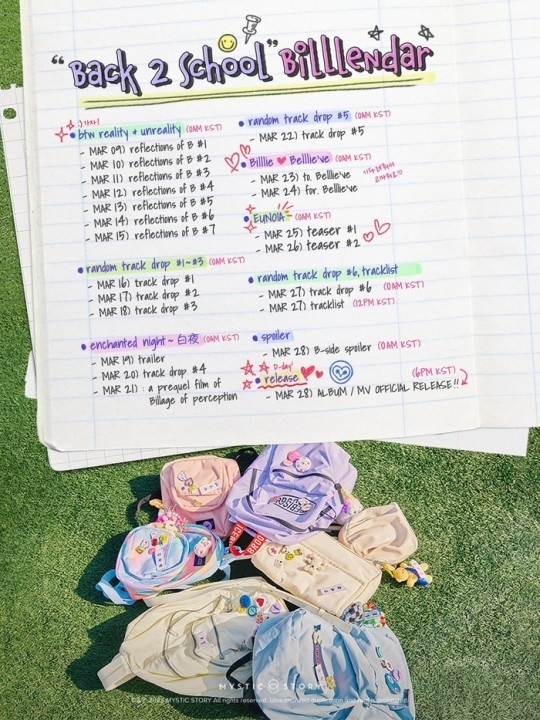 "Back 2 School" Billlendar
btw reality + unreality (0AM KST)
- MAR 09) reflections of B #1
- MAR 10) reflections of B #2
- MAR 11) reflections of B #3
- MAR 12) reflections of B #4
- MAR 13) reflections of B #5
- MAR 14) reflections of B #6
- MAR 15) reflections of B #7
random track drop #1~#3 (0AM KST)
- MAR 16) track drop #1
- MAR 17) track drop #2
- MAR 18) track drop #3
enchanted night ~ 白夜 (0AM KST)
- MAR 19) trailer
- MAR 20) track drop #4
- MAR 21) : a prequel film of
Billage of perception
random track drop #5 (0AM KST)
- MAR 22) track drop #5
Billlie ♥ Belllie've (0AM KST)
- MAR 23) to. Belllie've
- MAR 24) for. Belllie've
EUNOIA (0AM KST)
- MAR 25) teaser #1
- MAR 26) teaser #2
random track drop #6, tracklist
- MAR 27) track drop #6 (0AM KST)
- MAR 27) tracklist (12PM KST)
spoiler
- MAR 28) B-side spoiler (0AM KST)
D-day!
release
(6PM KST)
- MAR 28) ALBUM / MV OFFICIAL RELEASE!!
MYSTIC STORY